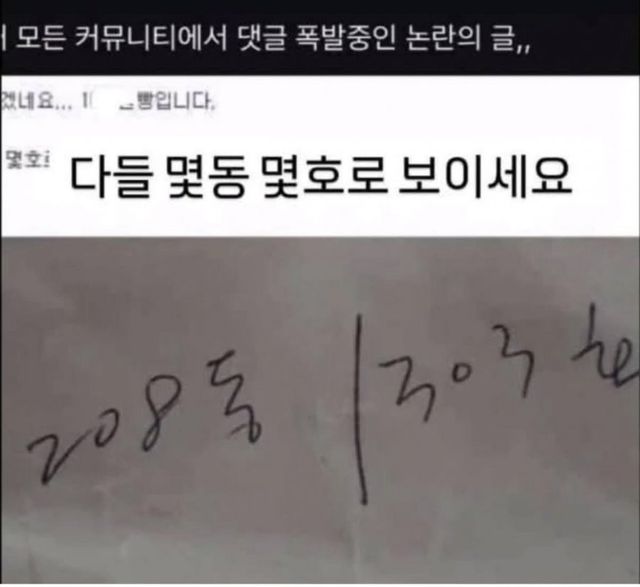 모든 커뮤니티에서 댓글 폭발중인 논란의 글,,
겠네요... 빵입니다.
다들 몇동 몇호로 보이세요
208동 1303호